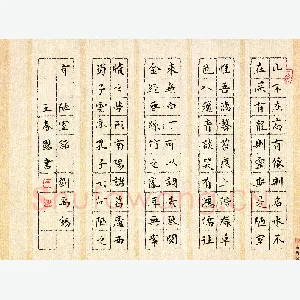 山不在高有僊則名水不
在深有龍則靈斯是陋室
惟吾德馨苔痕上階綠草
色入簾青談笑有鴻儒往
來無白丁可以調素琴閱
金經無絲竹之亂耳無案
牘之勞形南陽諸葛廬西
蜀子雲亭孔子云何陋之
有 陋室銘 劉禹錫
王春 書